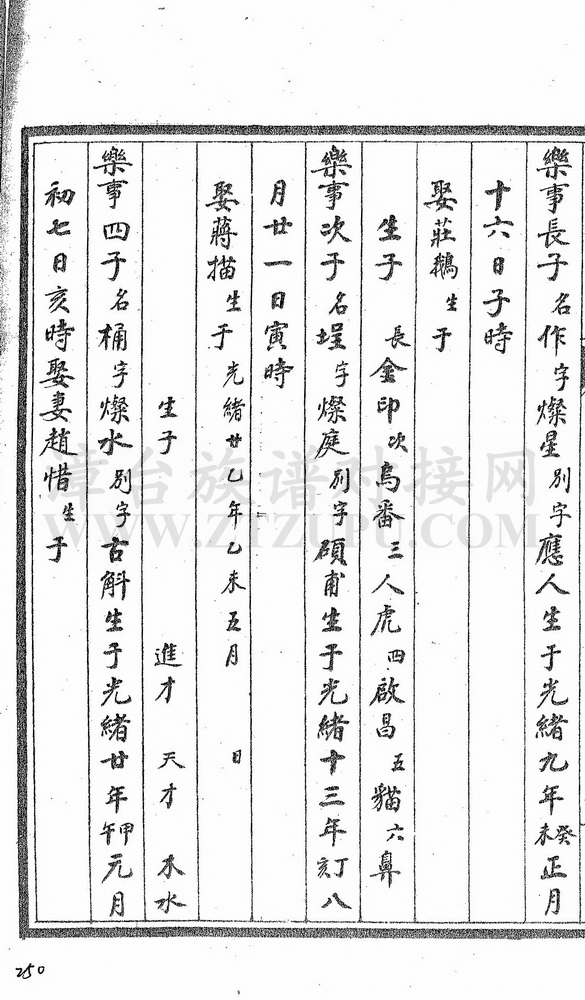 樂事長子名作字燦星別字應人生于光緒九年癸未正月
十六日子時
娶莊鵝生于
生子 長金印次烏番三人虎四啟昌五貓六鼻
樂事次子名埕字燦庭別字碩甫生于光緒十三年丁亥八
月廿一日寅時
娶蔣描生于光緒廿乙年乙未五月 日
生子 進才 天才 木水
樂事四子名桶字燦水別字古斛生于光緒廿年甲午元月
初七日亥時娶妻趙惜生于
250
漳台族谱对接网
WWW.ZTZUPU.COM